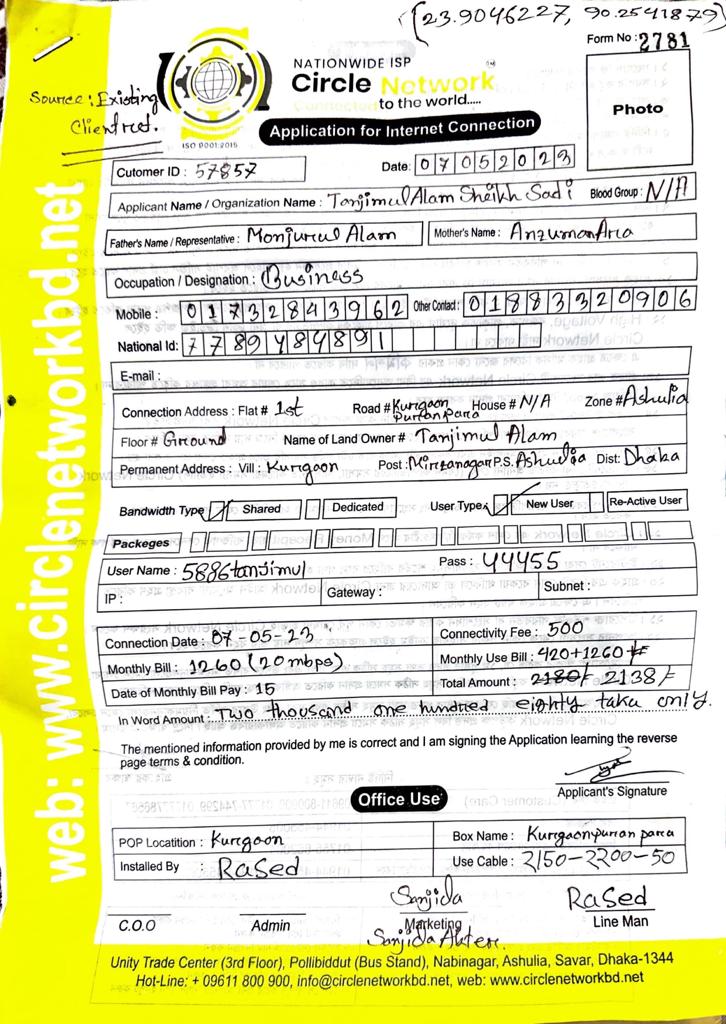 (23.9046227, 90.2541879)
Form No : 2781
NATIONWIDE ISP
Circle Network
Connected to the world.....
ISO 9001:2015
Source : Existing
Client ref.
Photo
Application for Internet Connection
Cutomer ID : 57857
Date: 07052023
Applicant Name / Organization Name : Tanjimul Alam Sheikh Sadi Blood Group : N/A
Father's Name / Representative : Monjurul Alam Mother's Name : Anzuman Ara
Occupation / Designation : Business
Mobile : 01732843962 Other Contact : 01883320906
National Id: 7789484891
E-mail :
Connection Address : Flat # 1st Road # Kurgaon Purranpara House # N/A Zone # Ashulia
Floor # Ground Name of Land Owner # Tanjimul Alam
Permanent Address : Vill : Kurgaon Post : Mirzanagar P.S. Ashulia Dist: Dhaka
Bandwidth Type Shared Dedicated User Type New User Re-Active User
Packeges
User Name : 5886tanjimul Pass : 44455
IP : Gateway : Subnet :
Connection Date : 07-05-23 Connectivity Fee : 500
Monthly Bill : 1260 (20 mbps) Monthly Use Bill : 420+1260
Date of Monthly Bill Pay : 15 Total Amount : 2180/ 2138/=
In Word Amount : Two thousand one hundred eighty taka only.
The mentioned information provided by me is correct and I am signing the Application learning the reverse
page terms & condition.
Applicant's Signature
Office Use
POP Locatition : Kurgaon Box Name : Kurgaonpurran para
Installed By : RaSed Use Cable : 2150-2200-50
Sanjida RaSed
C.O.O Admin Marketing Line Man
Sanjida Akter.
Unity Trade Center (3rd Floor), Pollibiddut (Bus Stand), Nabinagar, Ashulia, Savar, Dhaka-1344
Hot-Line: + 09611 800 900, info@circlenetworkbd.net, web: www.circlenetworkbd.net
web: www.circlenetworkbd.net